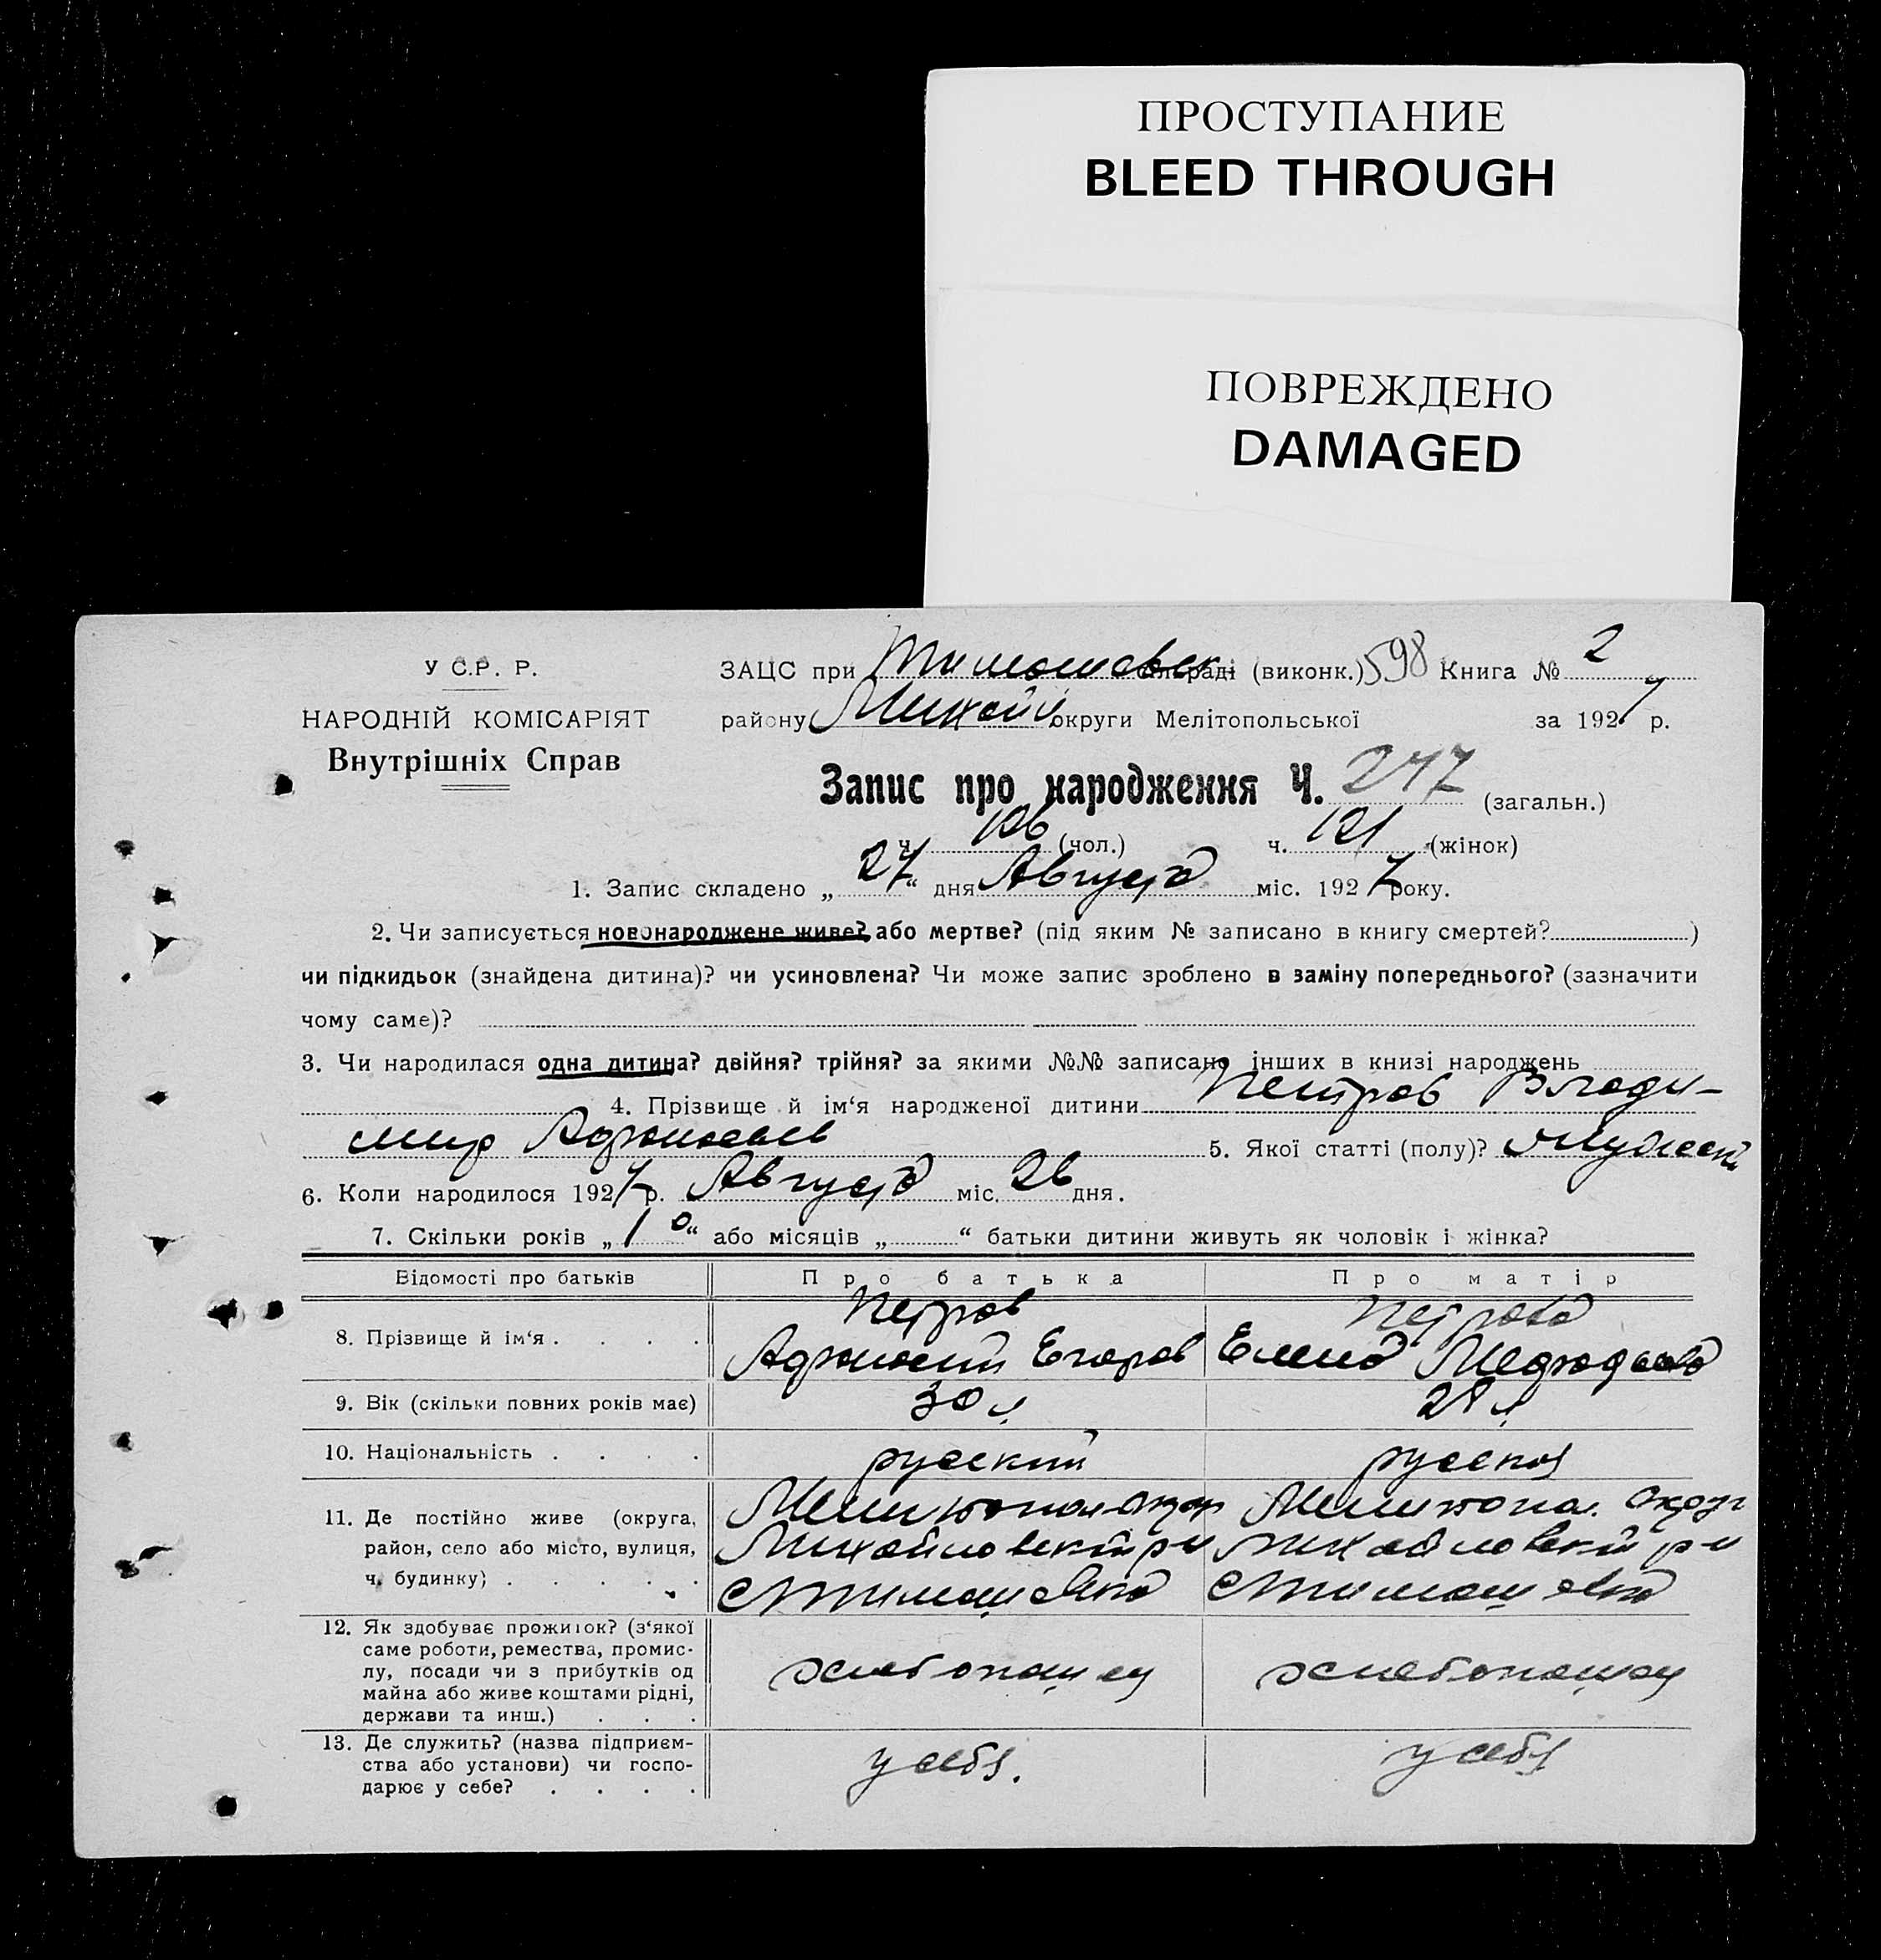 ПРОСТУПАНИЕ
BLEED THROUGH
ПОВРЕЖДЕНО
DAMAGED
У С.Р. Р.
НАРОДНІЙ КОМІСАРІЯТ
Внутрішніх Справ
ЗАЦС при Тимошовск. сільраді (виконк.) 598 Книга № 2
району Михайл округи Мелітопольської за 1927 р.
Запис про народження Ч. 247 (загальн.)
ч. 126 (чол.) ч. 121 (жінок)
1. Запис складено „27“ дня Августа міс. 1927 року.
2. Чи записується новонароджене живе? або мертве? (під яким № записано в книгу смертей?)
чи підкидьок (знайдена дитина)? чи усиновлена? Чи може запис зроблено в заміну попереднього? (зазначити
чому саме)?
3. Чи народилася одна дитина? двійня? трійня? за якими №№ записано інших в книзі народжень
4. Прізвище й ім‘я народженої дитини Петров Влади-
мир 5. Якої статті (полу)? Мужеск
6. Коли народилося 1927 р. Августа міс. 26 дня.
7. Скільки років „10“ або місяців „ “ батьки дитини живуть як чоловік і жінка?
Відомості про батьків Про батька Про матір
8. Прізвище й ім‘я . . . . Петров Петрова
Егоров Елена
9. Вік (скільки повних років має) 30 л 28 л
10. Національність . . . . русский русская
11. Де постійно живе (округа, Мелитопол округ Мелитопол. округ
район, село або місто, вулиця, Михайловский р-н Михайловский р-н
ч. будинку) . . . . . С Тимашовка С Тимашовка
12. Як здобуває прожиток? (з‘якої
саме роботи, ремества, промис-
лу, посади чи з прибутків од хлебопашец хлебопашец
майна або живе коштами рідні,
держави та инш.) . . .
13. Де служить? (назва підприєм-
ства або установи) чи госпо- у себя. у себя
дарює у себе? . . . .